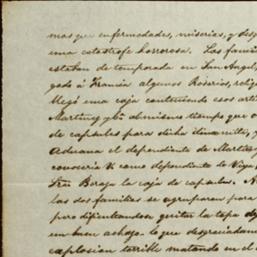 mas que enfermedades, miserias, y desg
una catastrofe horrorosa. Las fami
estaban de temporada en San Angel,
gado á Francia algunos Rosarios, relig
Llegó una caja conteniendo esos arti
Martinez y al mismo tiempo que o
de capsulas para dicha
Aduana el dependiente de Martez
conoceria Vi como dependiente de
la caja de capsulas. A
las dos familias se agruparon para
pero dificultandose quitar la tapa
un buen achazo. lo que desgraciadam
explosion terrible matando en el a